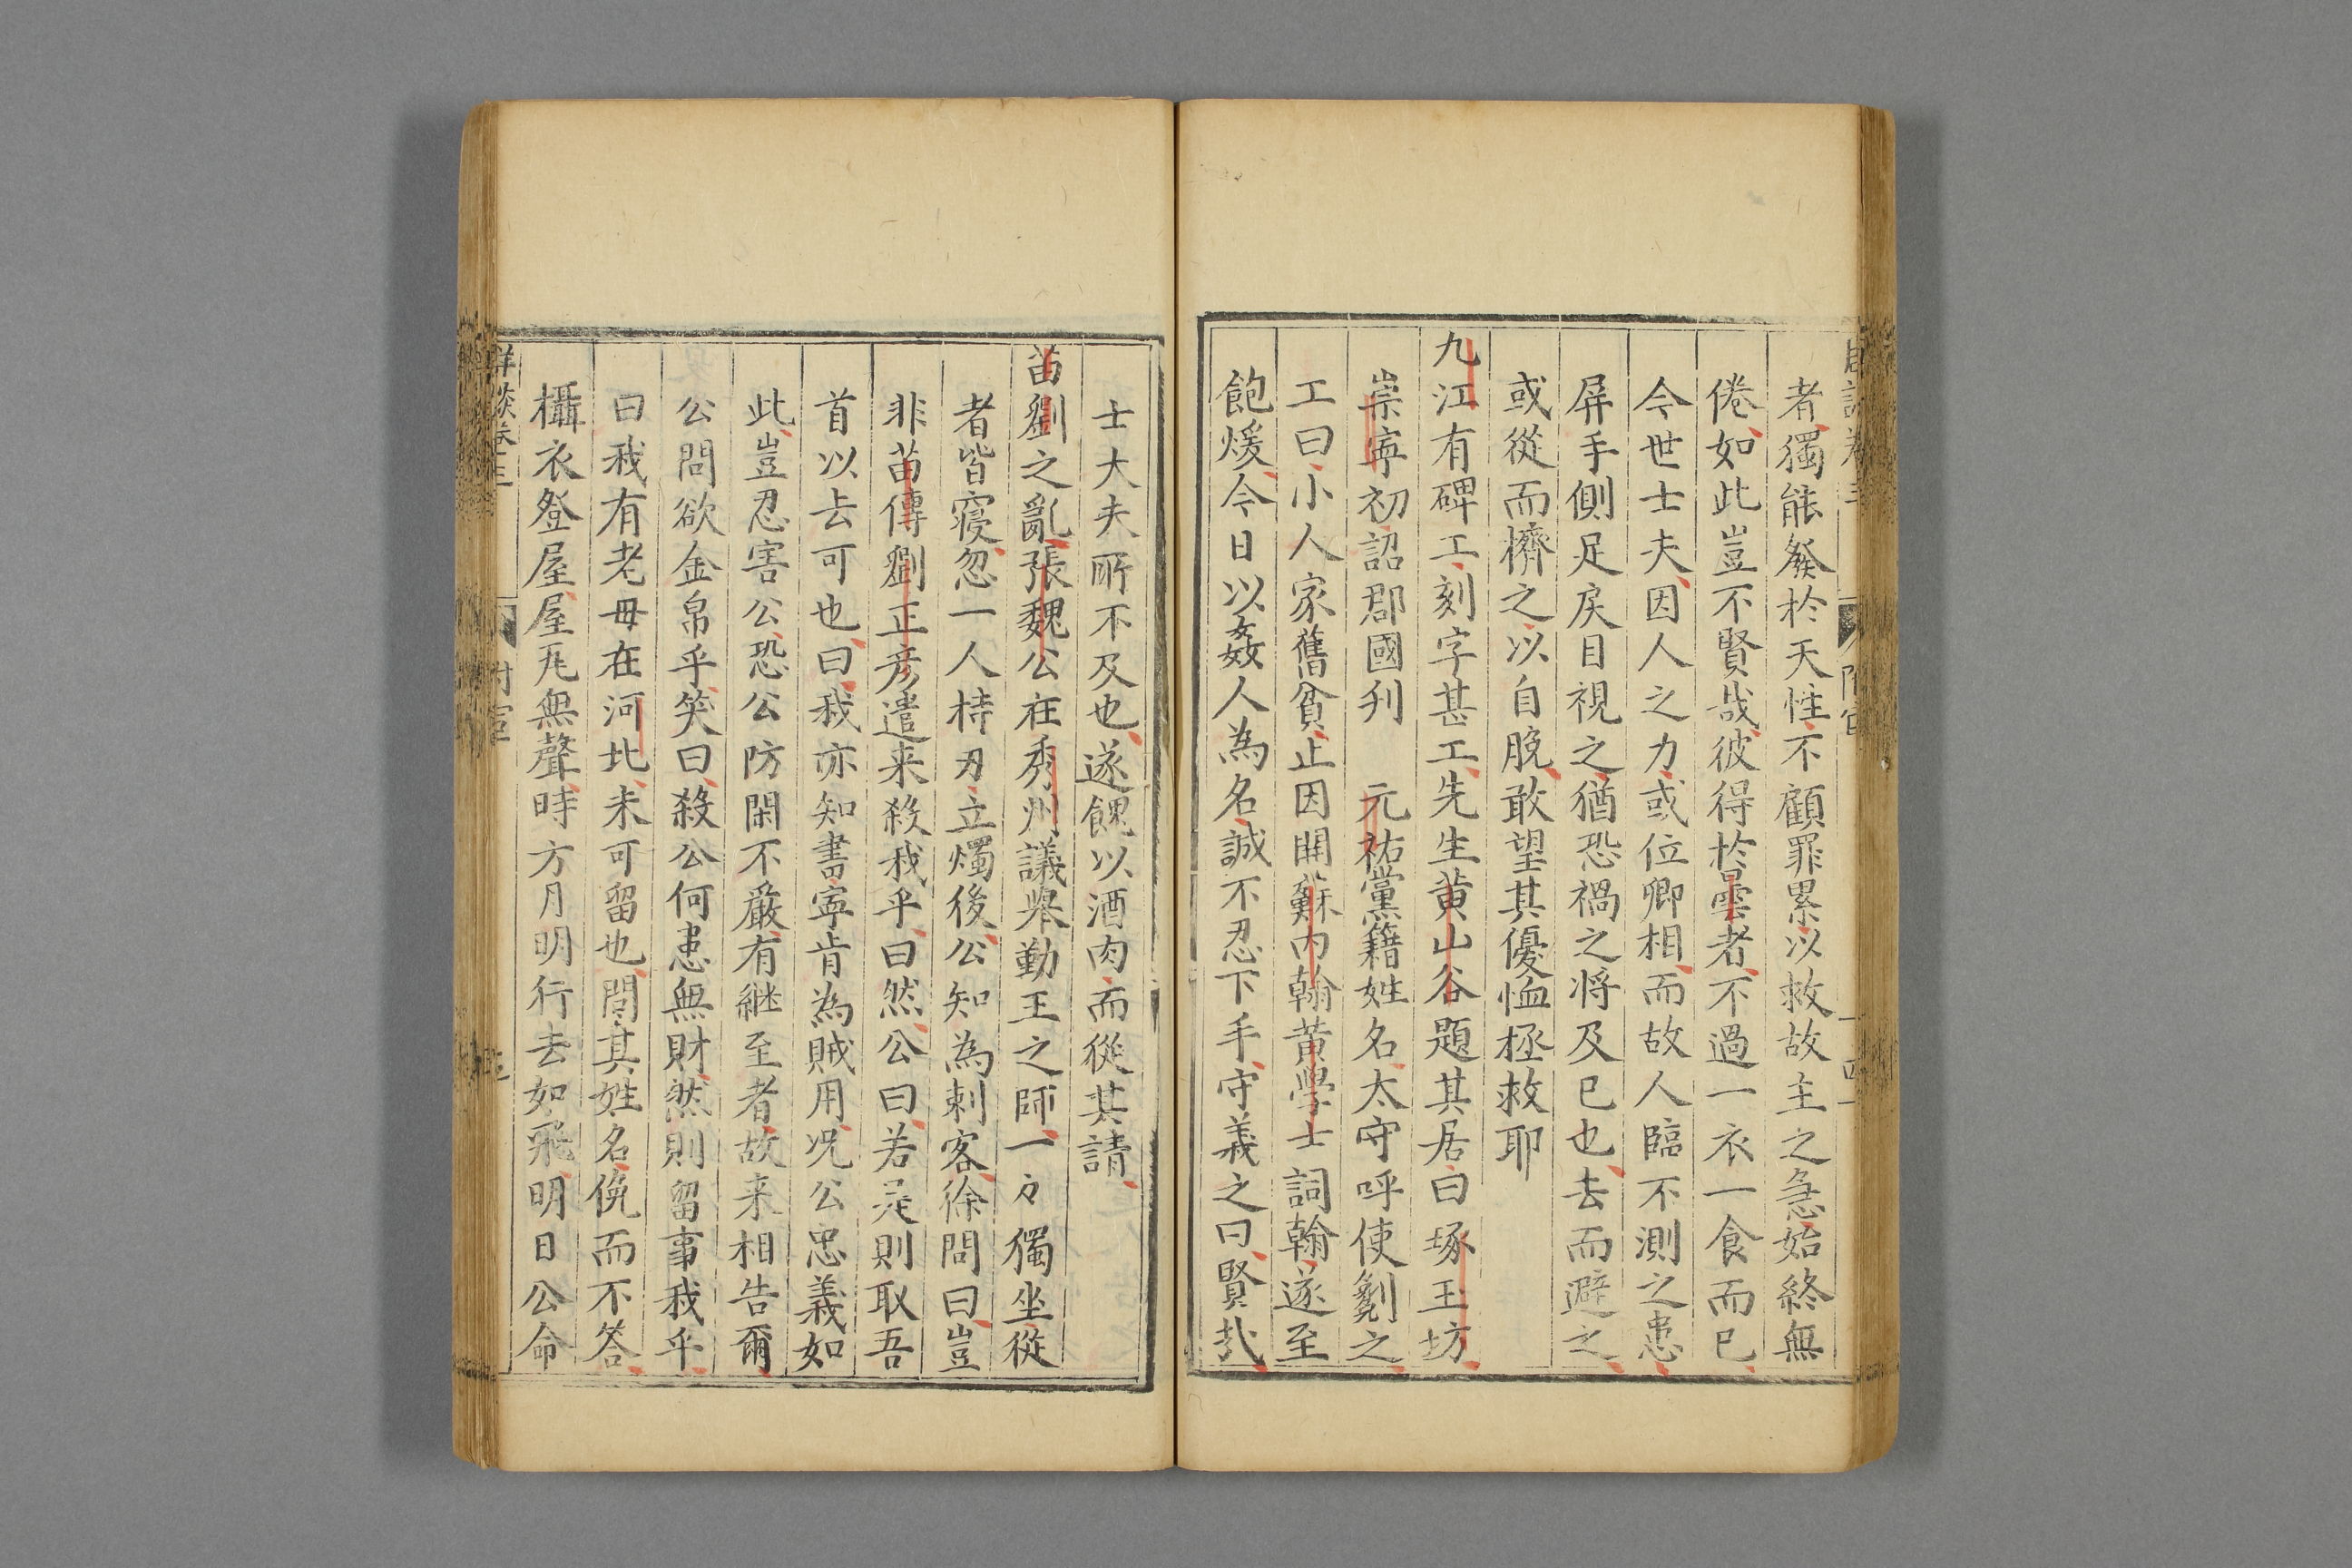 者獨能發於天性不顧罪累以救故主之急始終無
倦如此豈不賢哉彼得於曇者不過一衣一食而已
今世士夫因人之力或位卿相而故人臨不測之患
屏手側足戾目視之猶恐禍之將及已也去而避之
或從而擠之以自脫敢望其優恤拯救耶
九江有碑工刻字甚工先生黄山谷題其居曰琢玉坊
崇寧初詔郡國刋　元祐黨籍姓名太守呼使劖之
工曰小人家舊貧止因開蘇内翰黄學士詞翰遂至
飽煖今日以姦人為名誠不忍下手守義之曰賢㢤
士大夫所不及也遂餽以酒肉而從其請
苗劉之亂張魏公在秀州議舉勤王之師一夕獨坐從
者皆寢忽一人持刃立燭後公知為刺客徐問曰豈
非苗傅劉正彦遣来殺我乎曰然公曰若是則取吾
首以去可也曰我亦知書寧肯為賊用况公忠義如
此豈忍害公恐公防閑不嚴有継至者故来相告爾
公問欲金帛乎笑曰殺公何患無財然則留事我乎
曰我有老母在河北未可留也問其姓名俛而不答
攝衣登屋屋瓦無聲時方月明行去如飛明日公命